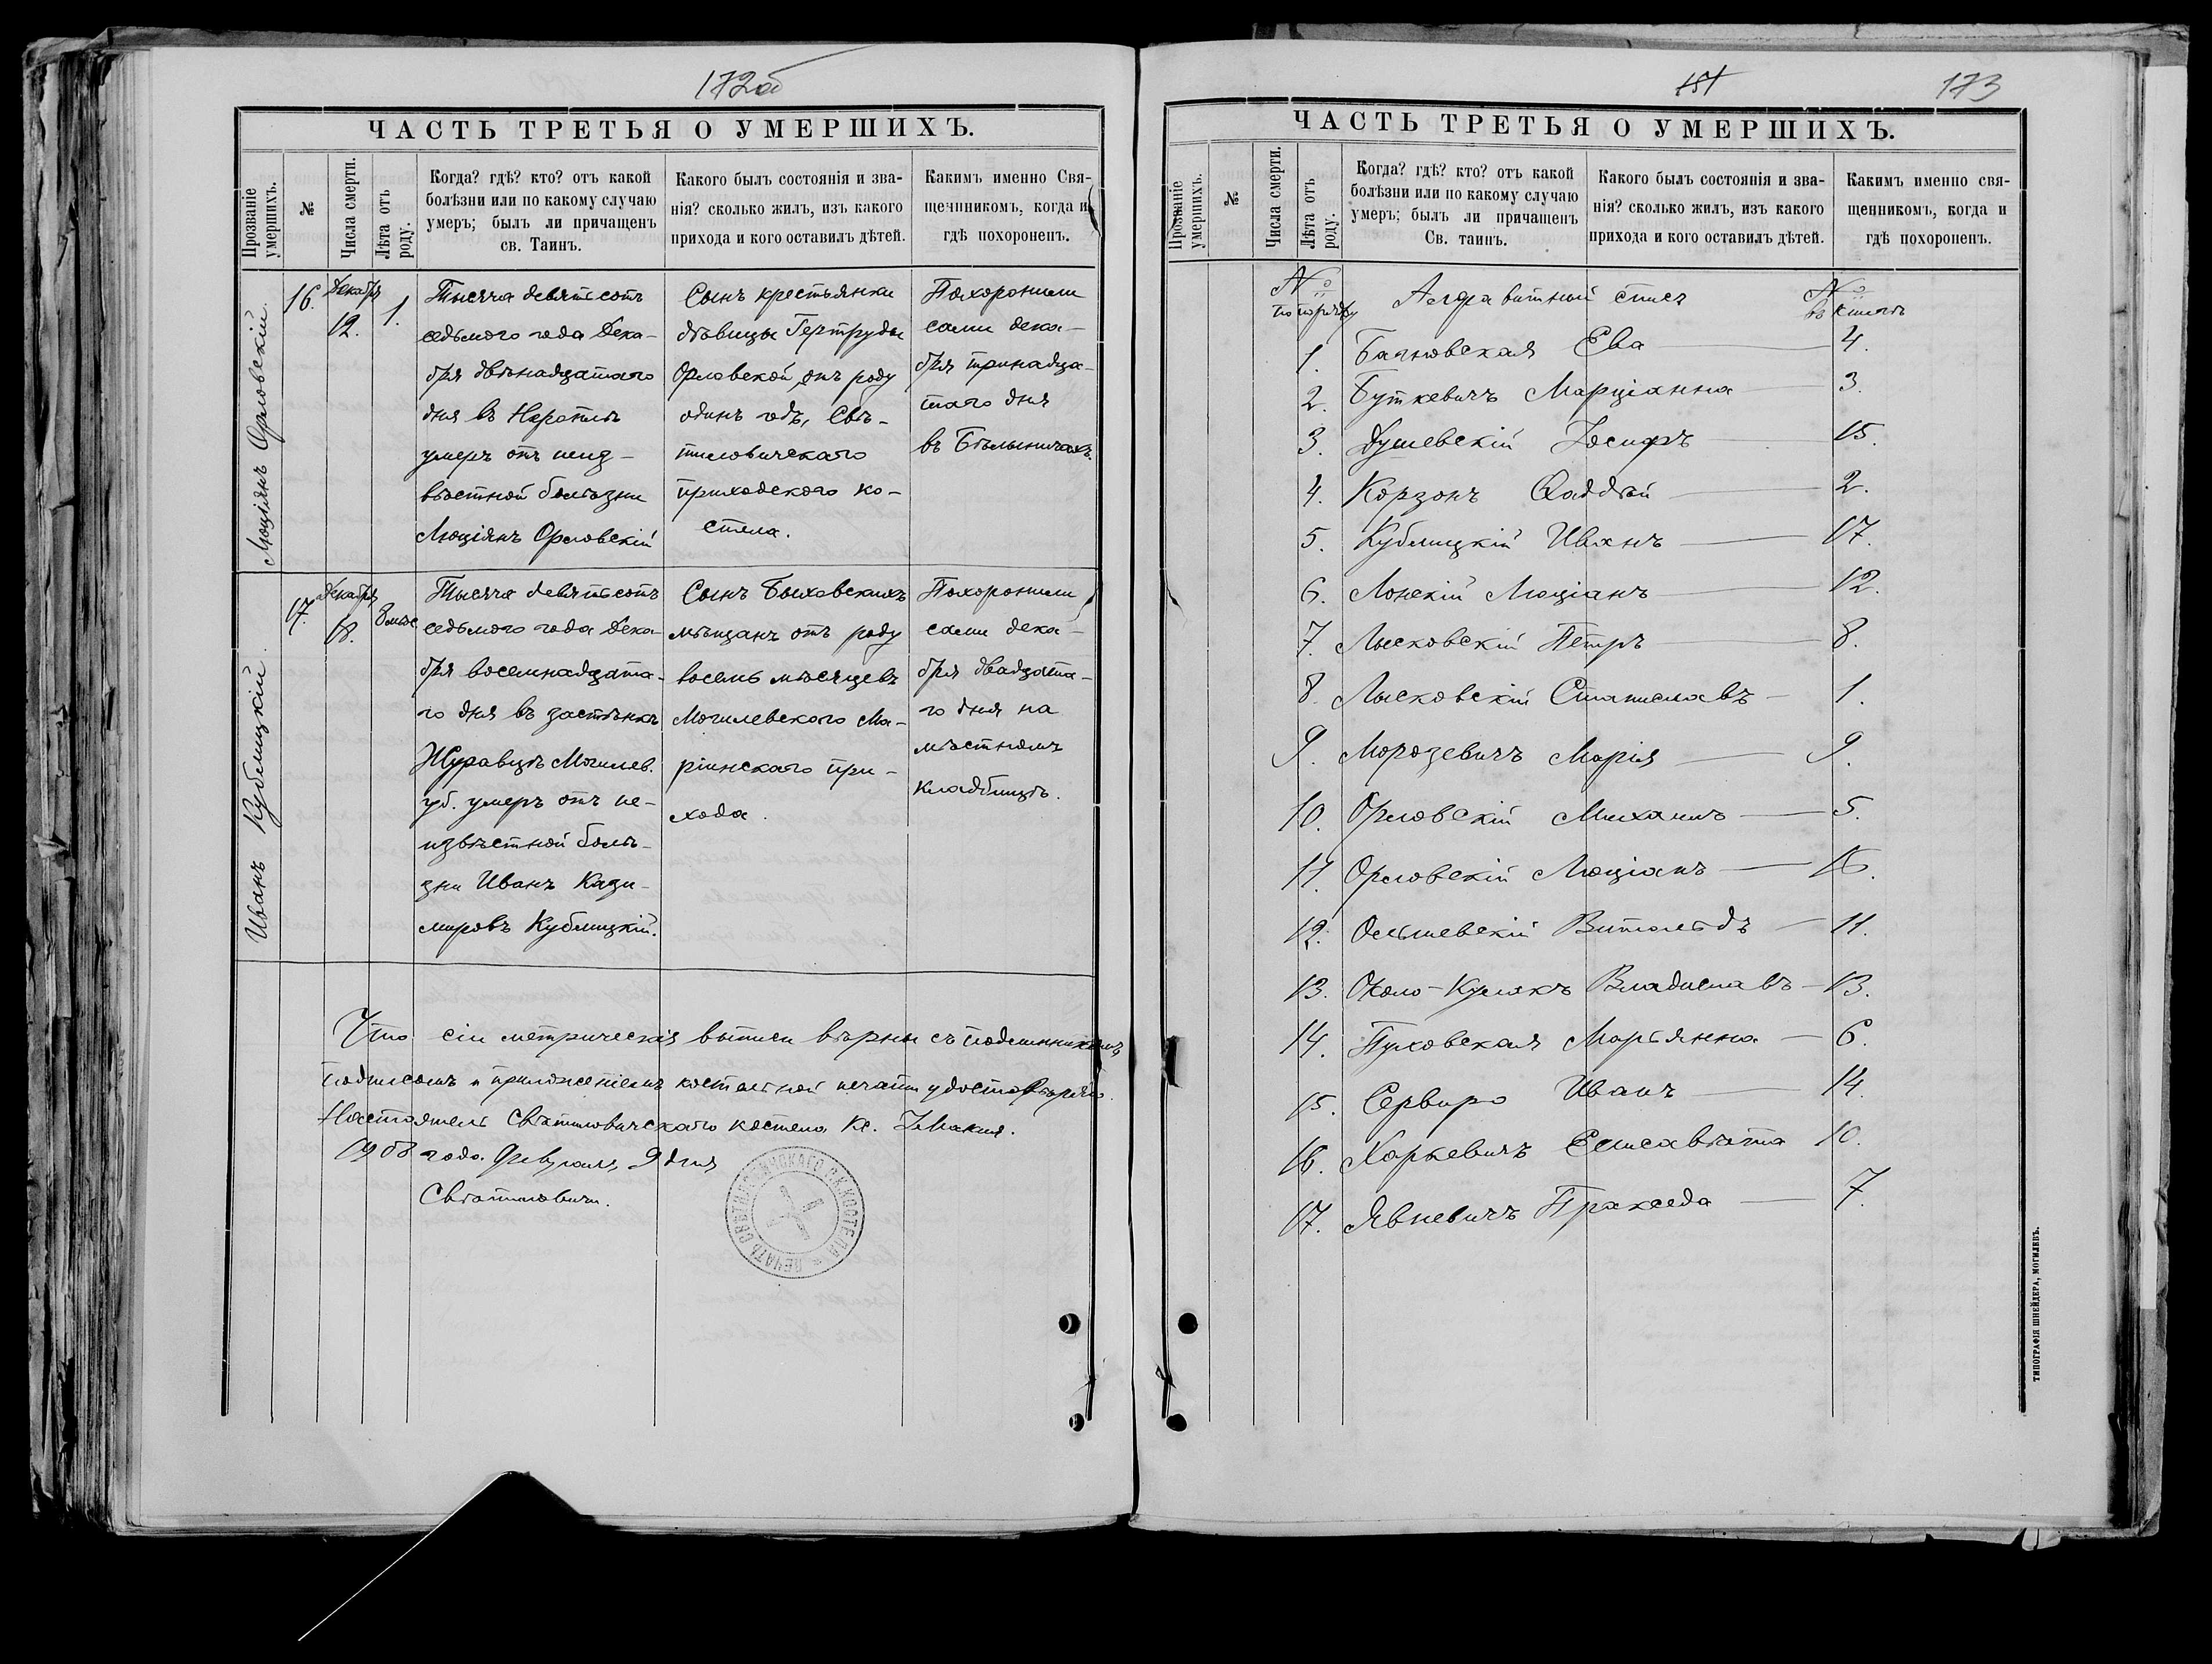 172об
ЧАСТЬ ТРЕТЬЯ О УМЕРШИХЪ.
Прозваніе умершихъ.
№
Числа смерти.
Лѣта отъ роду.
Когда? гдѣ? кто? отъ какой
болѣзни или по какому случаю
умеръ; былъ ли причащенъ
св. Таинъ.
Какого былъ состоянія и зва-
нія? сколько жилъ, изъ какого
прихода и кого оставилъ дѣтей.
Какимъ именно Свя-
щенникомъ, когда и
гдѣ похороненъ.
Люціянъ Орловскій
16.
Декабря
12.
1.
Тысяча девятьсотъ
седьмого года Дека-
бря двѣнадцатаго
дня въ
умеръ отъ неиз-
вѣстной болѣзни
Люціянъ Орловскій
Сынъ крестьянки
дѣвицы Гертруды
Орловской, отъ роду
одинъ годъ, Свѣ-
тиловичскаго
приходского ко-
стела.
Похоронили
сами дека-
бря тринадца-
таго дня
въ Бѣлыничахъ.
Иванъ Кублицкій.
17.
Декабря
18.
8 мѣс
Тысяча девятьсотъ
седьмого года Дека-
бря восемнадцата-
го дня въ застѣнкѣ
Журавцѣ Могилев.
губ. умеръ отъ не-
извѣстной болѣ-
зни Иванъ Кази-
мировъ Кублицкій.
Сынъ Быховскихъ
мѣщанъ отъ роду
восемь мѣсяцевъ
Могилевского Ма-
ріинскаго при-
хода.
Похоронили
сами дека-
бря двадцата-
го дня на
мѣстномъ
кладбищѣ.
Что сіи метрическія выписи вѣрны съ подлинникомъ
подписомъ и приложеніемъ костельной печати удостовѣряю.
Настоятель Свѣтиловичскаго костела Кс.
1908 года. Февраля 9 дня
Свѣтиловичи.
ПЕЧАТЬ СВѢТИЛОВИЧСКАГО Р.К. КОСТЕЛА
151
173
ЧАСТЬ ТРЕТЬЯ О УМЕРШИХЪ.
Прозваніе умершихъ.
№
Числа смерти.
Лѣта отъ роду.
Когда? гдѣ? кто? отъ какой
болѣзни или по какому случаю
умеръ; былъ ли причащенъ
Св. таинъ.
Какого былъ состоянія и зва-
нія? сколько жилъ, изъ какого
прихода и кого оставилъ дѣтей.
Какимъ именно свя-
щенникомъ, когда и
гдѣ похороненъ.
№ по порядку Алфавитный спись № въ книгѣ
1. Ева 4.
2. Буткевичъ Марціанна 3.
3. Душевскій Іосифъ 15.
4. Корзонъ Фаддѣй 2.
5. Кублицкій Иванъ 17.
6. Лонскій Люціанъ 12.
7. Лысковскій Петръ 8.
8. Лысковскій Станиславъ 1.
9. Морозевичъ Марія 9.
10. Орловскій Михаилъ 5.
11. Орловскій Люціанъ 16.
12. Ольшевскій Витольдъ 11.
13. Около-Кулакъ Владиславъ 13.
14. Пуховская Марьянна 6.
15. Сервиро Иванъ 14.
16. Харкевичъ Елисавѣта 10.
17. Явневичъ Пракседа 7.
ТИПОГРАФІЯ ШНЕЙДЕРА, МОГИЛЕВЪ.